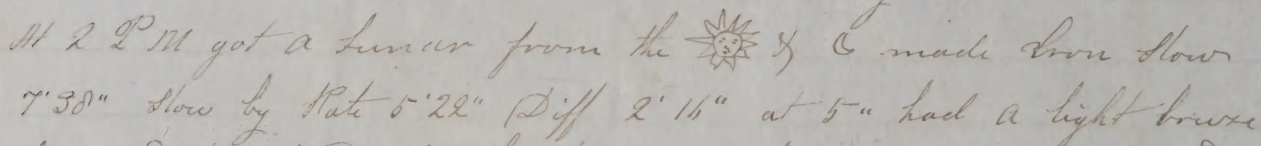 At 2 P M got a Lunar from the ☀ & ☾ made Cron Slow
7'38" Slow by Rate 5'22" Diff 2'16" at 5" had a light breeze